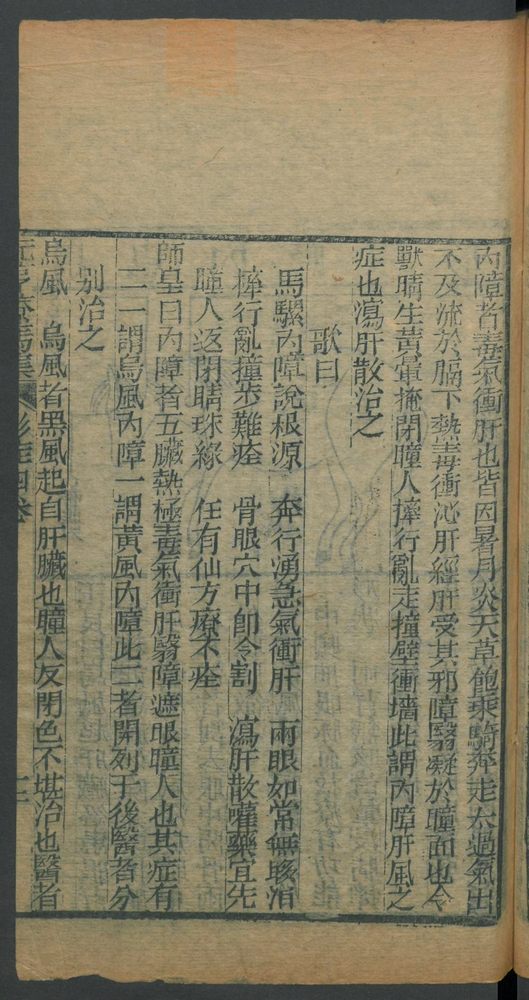 內障者毒氣衝肝也皆因暑月炎天草飽乘騎奔走太過氣出
不及流於膈下熱毒衝沁肝經肝受其邪障翳凝於瞳面也令
獸睛生黃暈掩閉瞳人擇行亂走撞壁衝墻此謂內障肝風之
症也瀉肝散治之
歌曰
馬騾內障說根源 奔行湧急氣衝肝 兩眼如常無
擇行亂撞步難痊 骨眼穴中即令割 瀉肝散灌藥宜先
瞳人返閉睛珠綠 任有仙方療不痊
師皇曰內障者五臟熱極毒氣衝肝翳障遮眼瞳人也其症有
二一謂烏風內障一謂黃風內障此二者開列于後醫者分
別治之
烏風 烏風者黑風起自肝臟也瞳人反閉色不堪治也醫者